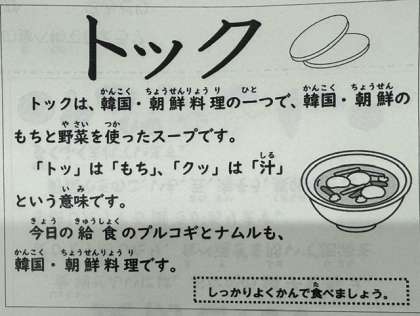 トック
トックは、韓国・朝鮮料理の一つで、韓国・朝鮮の
もちと野菜を使ったスープです。
「トッ」は「もち」、「クッ」は「汁」
という意味です。
今日の給食のプルコギとナムルも、
韓国・朝鮮料理です。
しっかりよくかんで食べましょう。